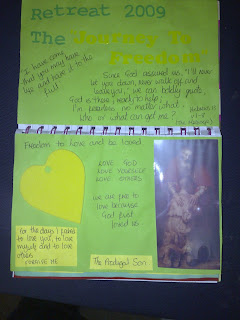 Retreat 2009
The Journey To
Freedom"
"I have come
that you may have
life and have it to the
full"
Since God assured us, "I'll never
let you down, never walk off and
leave you," we can boldly quote,
God is there, ready to help;
I'm fearless no matter what.
Who or what can get me?
Hebrews 13
The Message
Freedom to love and be loved
LOVE GOD
LOVE YOURSELF
LOVE OTHERS
we are free to
love because
God first
loved us
For the days I failed
to love you, to love
myself and to love
others
FORGIVE ME
The Prodigal Son